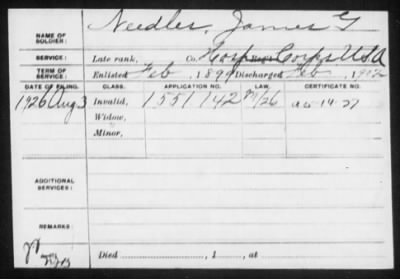 NAME OF SOLDIER: Needler, James G
SERVICE: Late rank, Co. Hosp Corps USA
TERM OF SERVICE: Enlisted Feb, 1899 Discharged Feb, 1902
DATE OF FILING. CLASS. APPLICATION NO. LAW. CERTIFICATE NO.
1926 Aug 3 Invalid, 1551142
Widow,
Minor,
ADDITIONAL SERVICES:
REMARKS:
Died , 1 , at